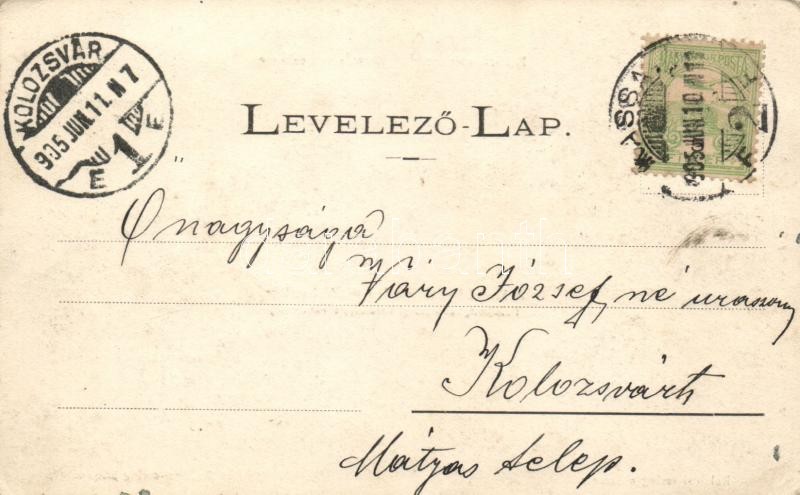 KOLOZSVÁR
905 JUN. 11. N 7
E 1 E
LEVELEZŐ-LAP.
KASSA
905 JUN 10 N 11
Őnagysága
Váry József né urasszony
Kolozsvárt
Mátyás telep.